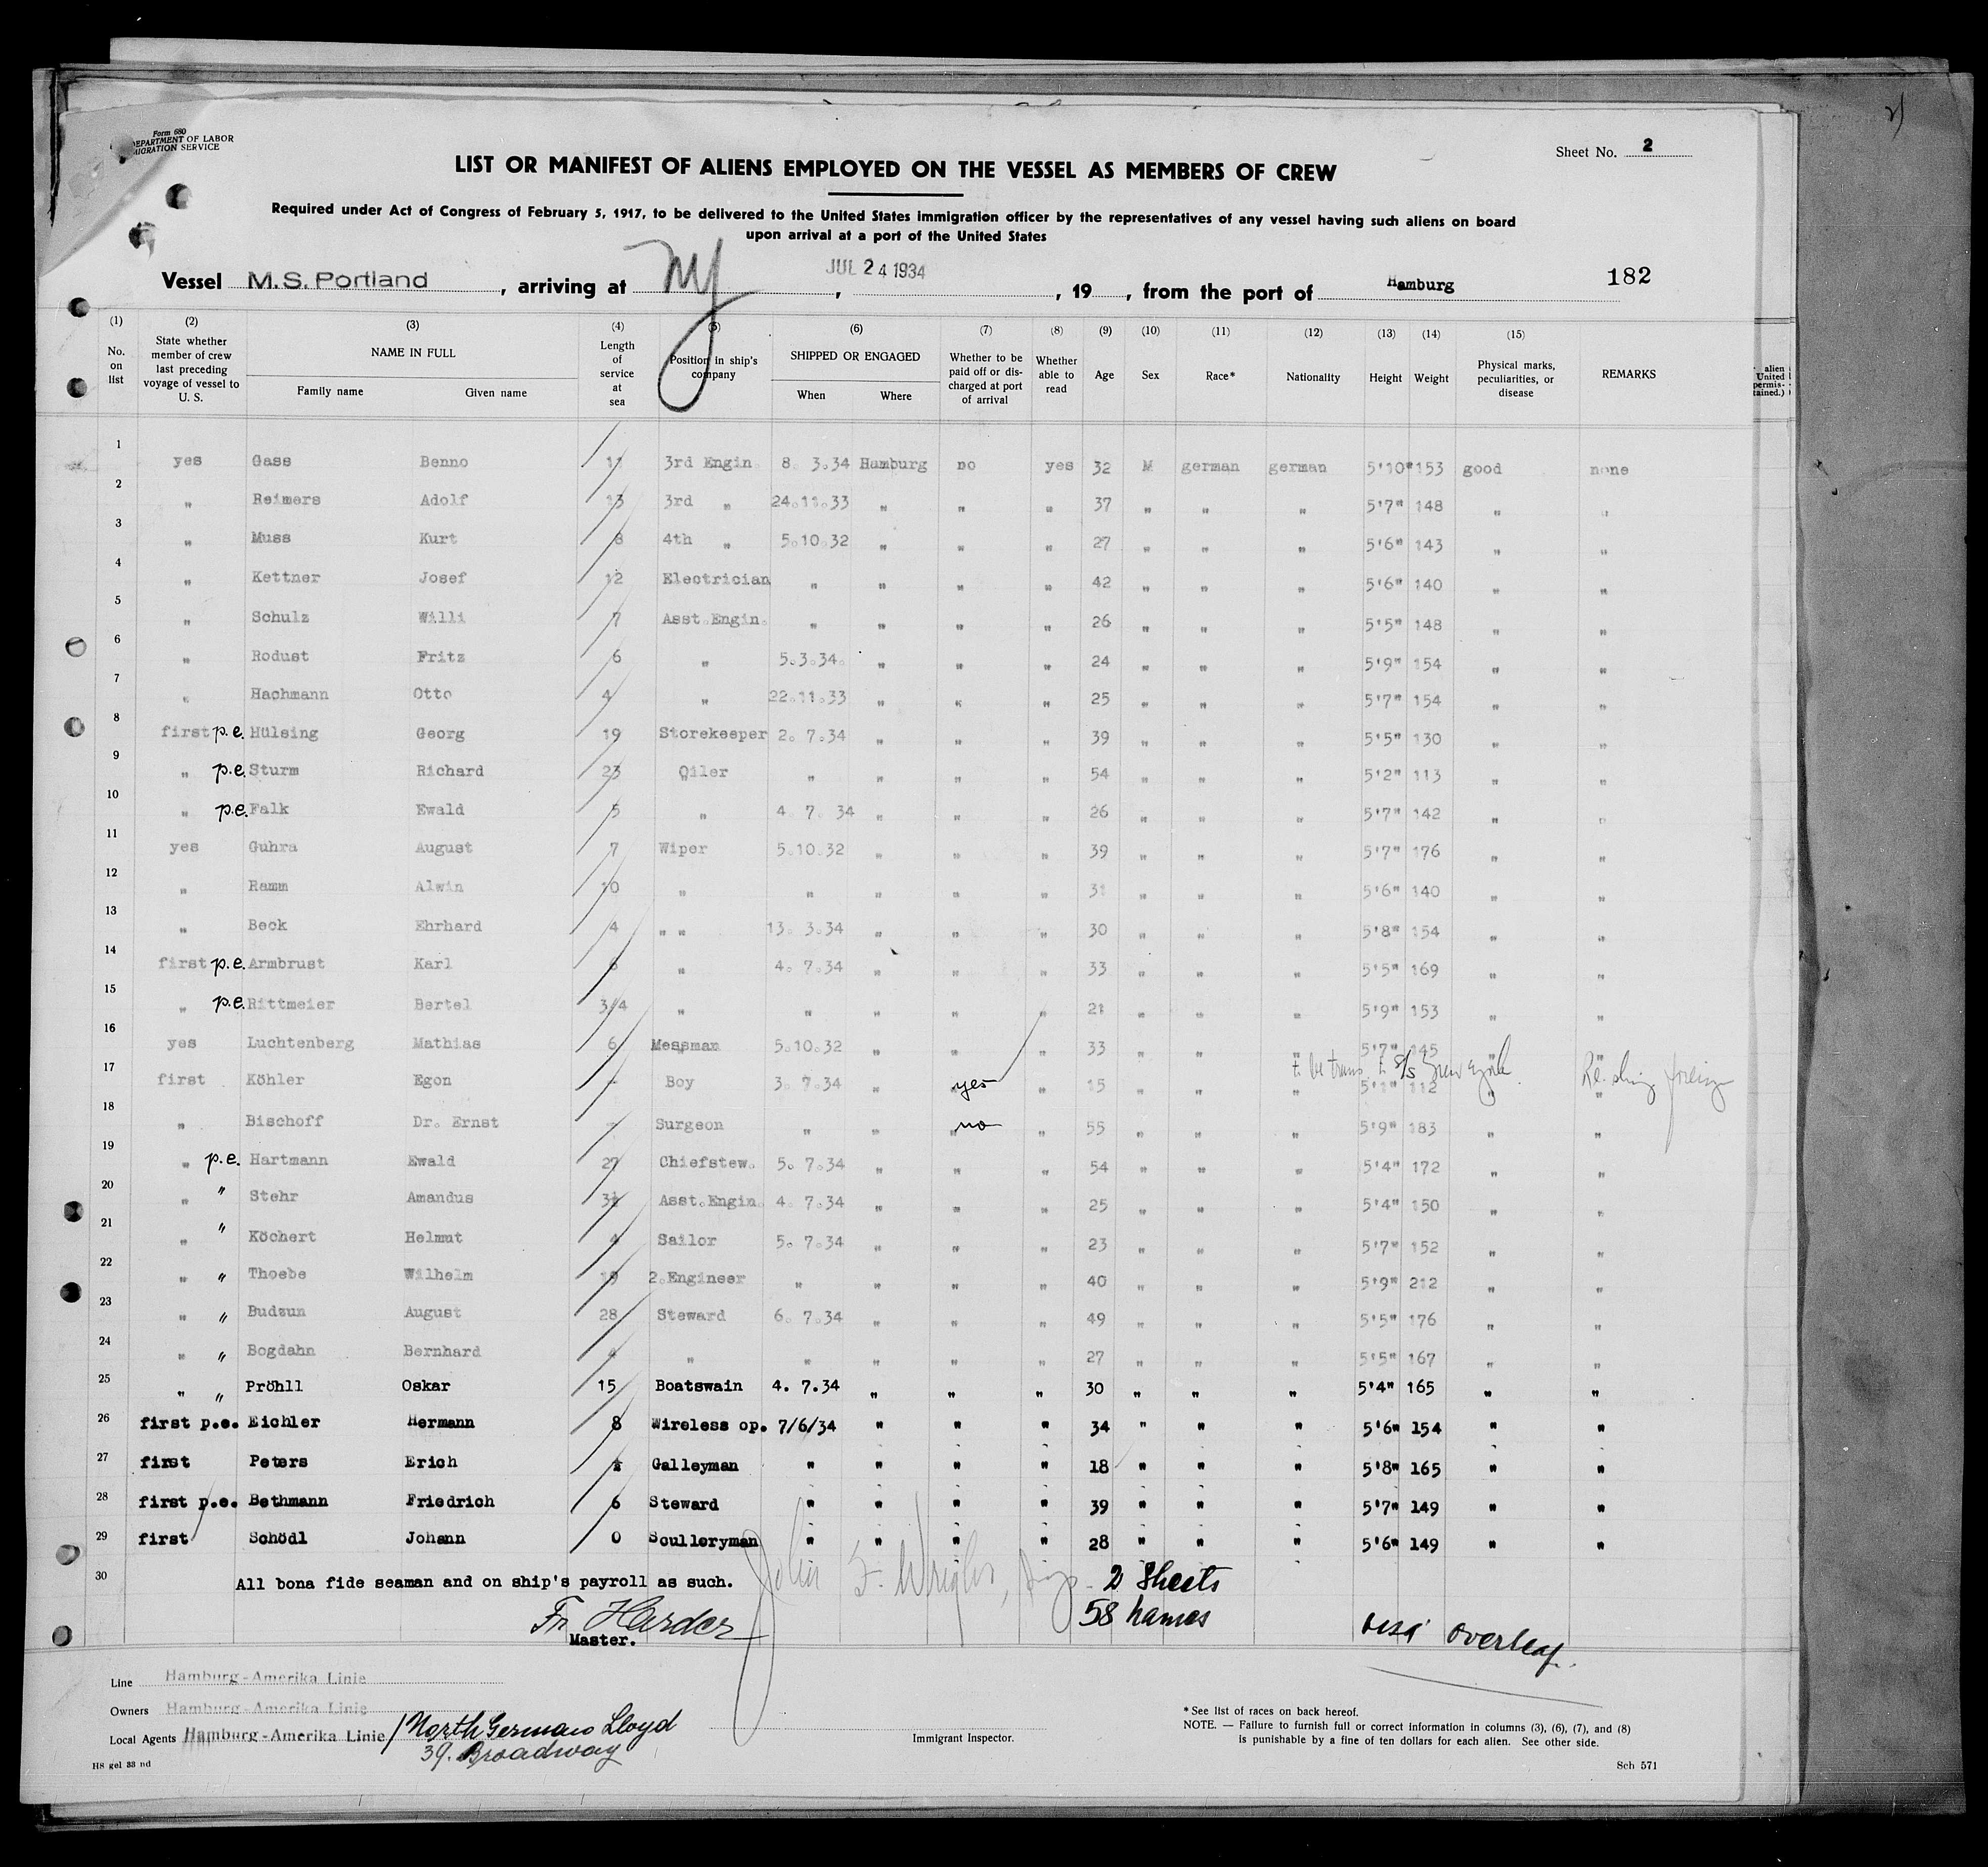 Form 680
DEPARTMENT OF LABOR
IMMIGRATION SERVICE
Sheet No. 2
LIST OR MANIFEST OF ALIENS EMPLOYED ON THE VESSEL AS MEMBERS OF CREW
Required under Act of Congress of February 5, 1917, to be delivered to the United States immigration officer by the representatives of any vessel having such aliens on board
upon arrival at a port of the United States
Vessel M.S. Portland, arriving at NY, JUL 24 1934, 19, from the port of Hamburg 182
(1) No. on list (2) State whether member of crew last preceding voyage of vessel to U. S. (3) NAME IN FULL Family name Given name (4) Length of service at sea (5) Position in ship's company (6) SHIPPED OR ENGAGED When Where (7) Whether to be paid off or discharged at port of arrival (8) Whether able to read (9) Age (10) Sex (11) Race* (12) Nationality (13) Height (14) Weight (15) Physical marks, peculiarities, or disease REMARKS
1 yes Gass Benno 11 3rd Engin. 8. 3.34 Hamburg no yes 32 M german german 5'10" 153 good none
2 " Reimers Adolf 13 3rd " 24.11.33 " " " 37 " " " 5'7" 148 " "
3 " Muss Kurt 8 4th " 5.10.32 " " " 27 " " " 5'6" 143 " "
4 " Kettner Josef 12 Electrician " " " " 42 " " " 5'6" 140 " "
5 " Schulz Willi 7 Asst.Engin. " " " " 26 " " " 5'5" 148 " "
6 " Rodust Fritz 6 " 5.3.34. " " " 24 " " " 5'9" 154 " "
7 " Hachmann Otto 4 " 22.11.33 " " " 25 " " " 5'7" 154 " "
8 first p.e. Hülsing Georg 19 Storekeeper 2. 7.34 " " " 39 " " " 5'5" 130 " "
9 " p.e. Sturm Richard 23 Oiler " " " " 54 " " " 5'2" 113 " "
10 " p.e. Falk Ewald 5 " 4. 7. 34 " " " 26 " " " 5'7" 142 " "
11 yes Guhra August 7 Wiper 5.10.32 " " " 39 " " " 5'7" 176 " "
12 " Ramm Alwin 10 " " " " " 31 " " " 5'6" 140 " "
13 " Beck Ehrhard 4 " " 13. 3.34 " " " 30 " " " 5'8" 154 " "
14 first p.e. Armbrust Karl 6 " 4. 7.34 " " " 33 " " " 5'5" 169 " "
15 " p.e. Rittmeier Bertel 3/4 " " " " " 21 " " " 5'9" 153 " "
16 yes Luchtenberg Mathias 6 Messman 5.10.32 " " " 33 " " " 5'7" 145 " "
17 first Köhler Egon - Boy 3. 7.34 " yes " 15 " " " to be trans. to S/S New York 5'1" 112 " "
18 " Bischoff Dr. Ernst - Surgeon " " no " 55 " " " 5'9" 183 " "
19 " p.e. Hartmann Ewald 27 Chiefstew. 5. 7.34 " " " 54 " " " 5'4" 172 " "
20 " " Stehr Amandus 3½ Asst.Engin. 4. 7.34 " " " 25 " " " 5'4" 150 " "
21 " " Köchert Helmut 4 Sailor 5. 7.34 " " " 23 " " " 5'7" 152 " "
22 " " Thoebe Wilhelm 19 2.Engineer " " " " 40 " " " 5'9" 212 " "
23 " " Budzun August 28 Steward 6. 7.34 " " " 49 " " " 5'5" 176 " "
24 " " Bogdahn Bernhard 4 " " " " " 27 " " " 5'5" 167 " "
25 " " Pröhll Oskar 15 Boatswain 4. 7.34 " " " 30 " " " 5'4" 165 " "
26 first p.e. Eichler Hermann 8 Wireless op. 7/6/34 " " " 34 " " " 5'6" 154 " "
27 first Peters Erich Galleyman " " " " 18 " " " 5'8" 165 " "
28 first p.e. Bethmann Friedrich 6 Steward " " " " 39 " " " 5'7" 149 " "
29 first Schödl Johann 0 Sculleryman " " " " 28 " " " 5'6" 149 " "
30 All bona fide seaman and on ship's payroll as such. 2 Sheets
58 names
Fr. Harder
Master.
visa overleaf.
Line Hamburg-Amerika Linie
Owners Hamburg-Amerika Linie
Local Agents Hamburg-Amerika Linie / North German Lloyd
39. Broadway
Immigrant Inspector.
*See list of races on back hereof.
NOTE. — Failure to furnish full or correct information in columns (3), (6), (7), and (8)
is punishable by a fine of ten dollars for each alien. See other side.
HS gel 33 nd
Sch 571